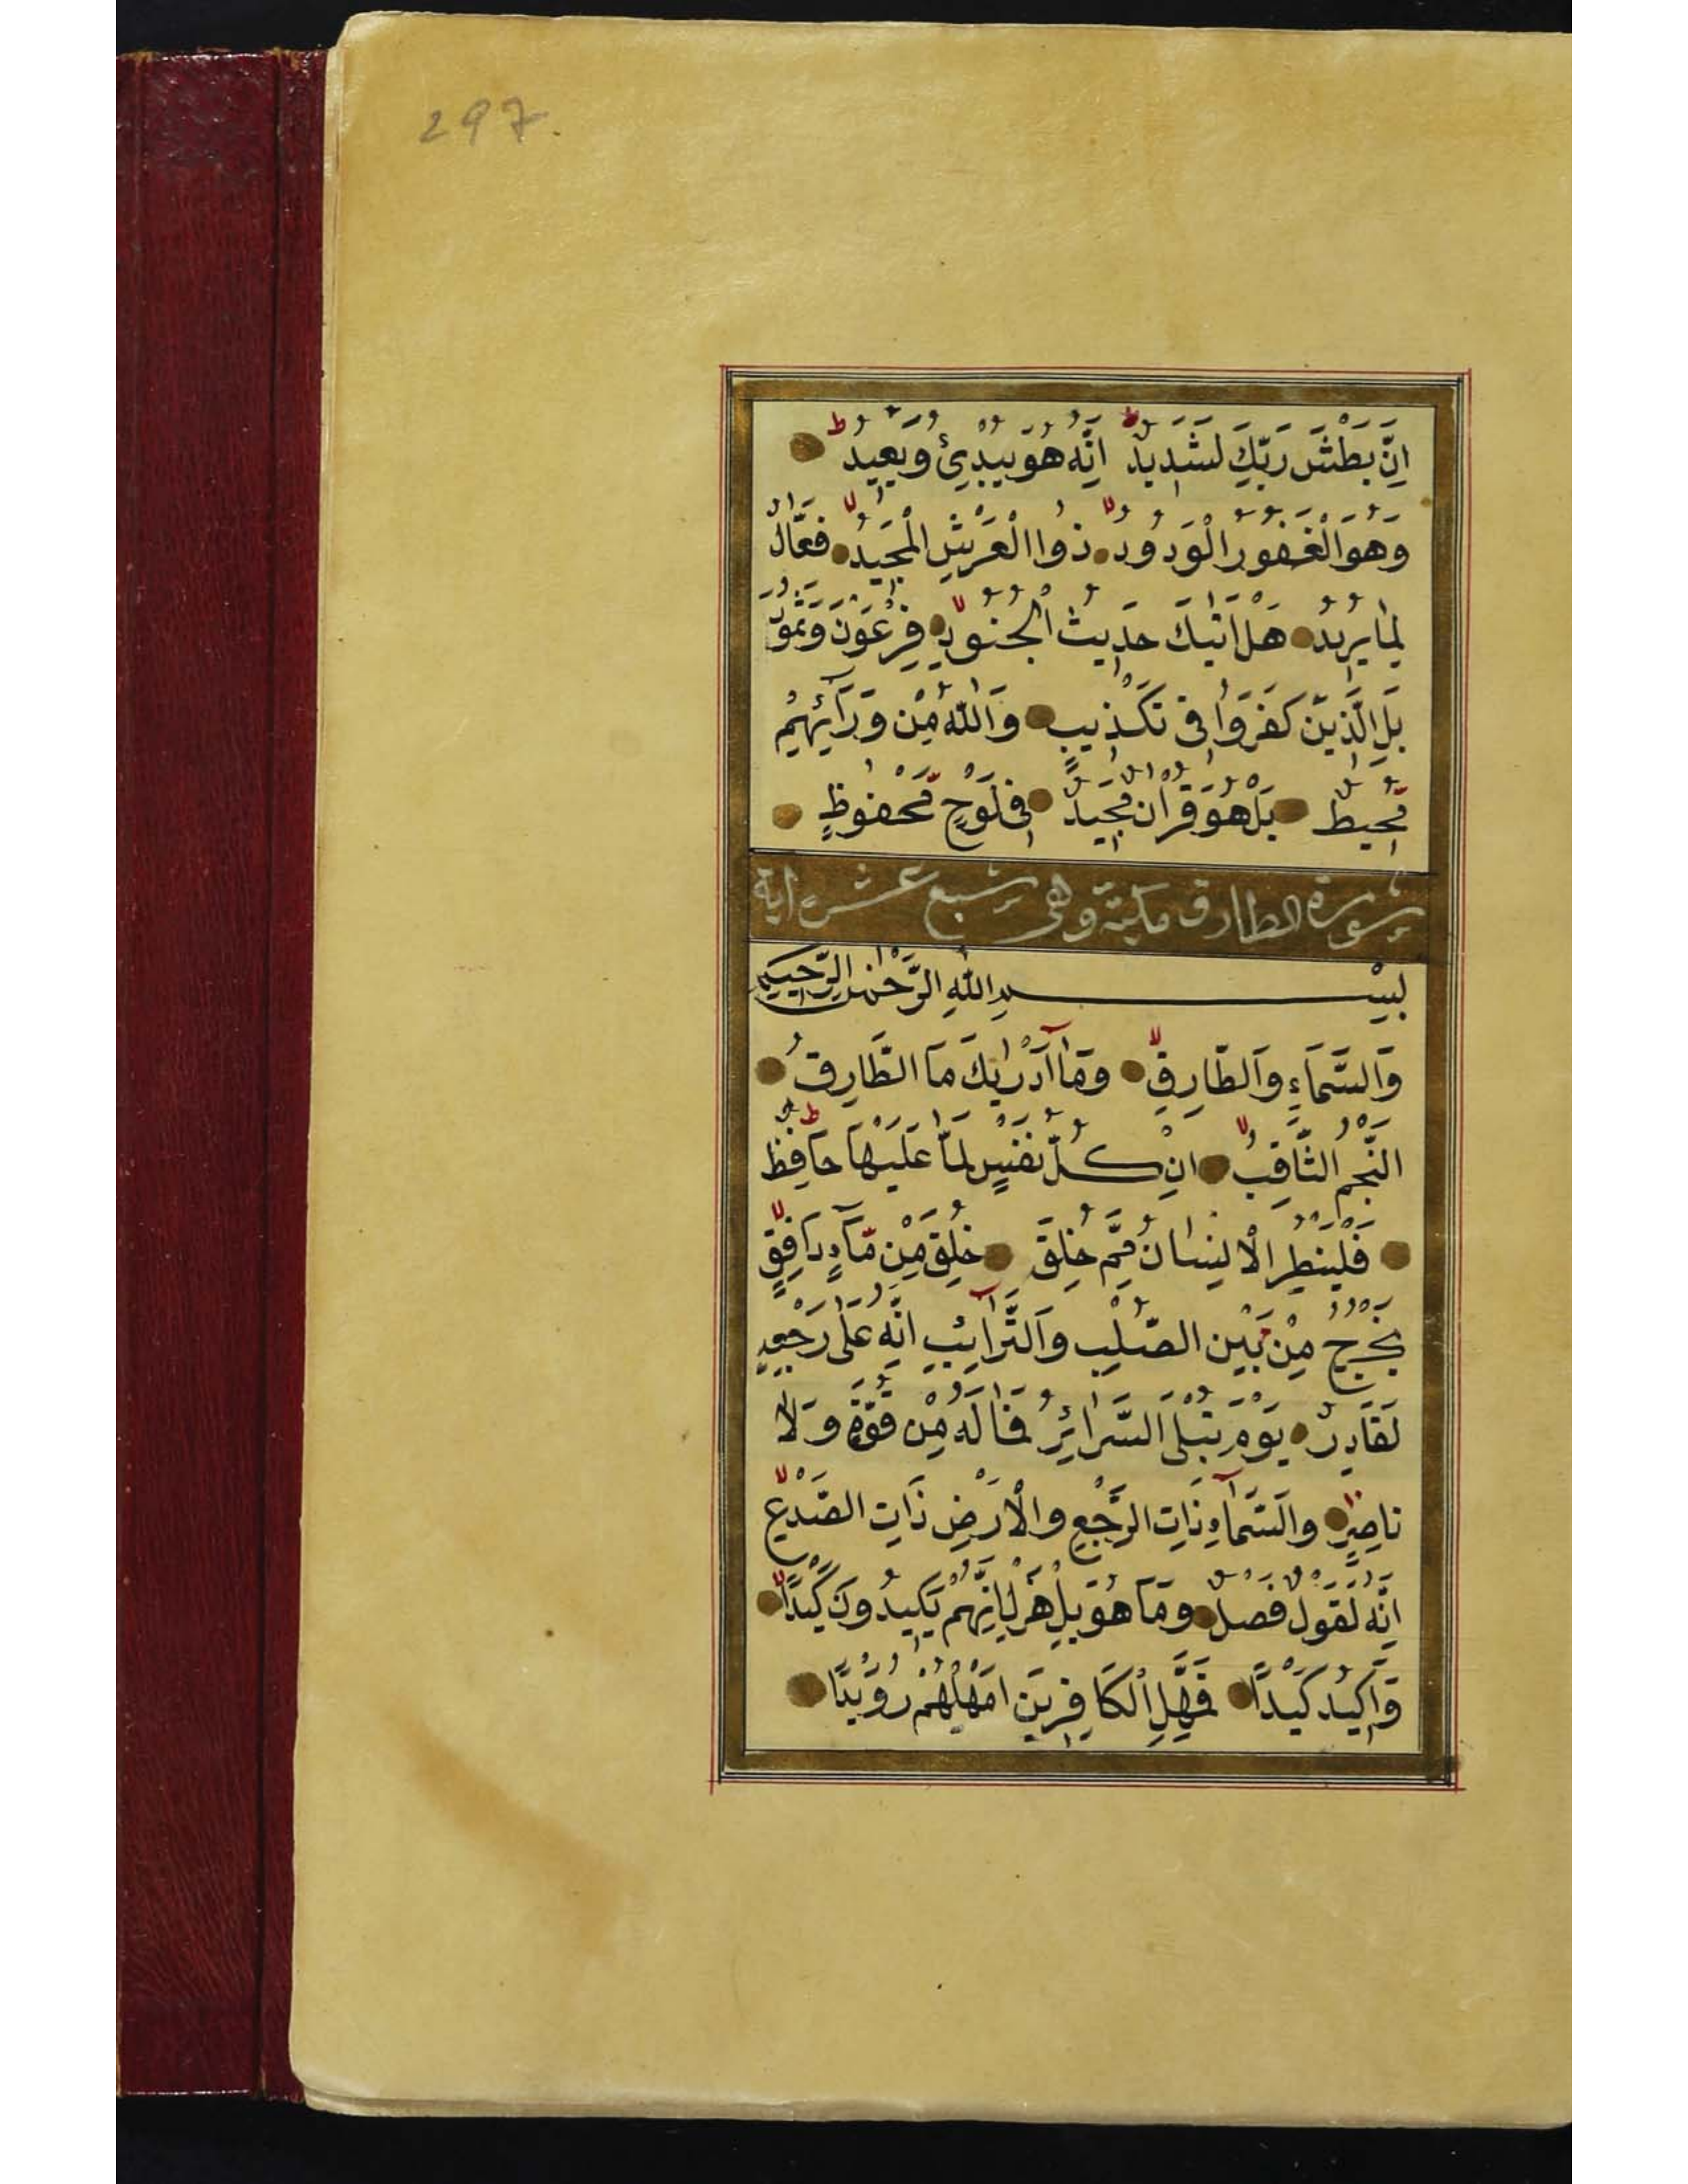 297.
اِنَّ بَطْشَ رَبِّكَ لَشَدِيدٌ اِنَّهُ هُوَ يُبْدِئُ وَيُعِيدُ
وَهُوَ الْغَفُورُ الْوَدُودُ ذُوا الْعَرْشِ الْمَجِيدُ فَعَّالٌ
لِمَا يُرِيدُ هَلْ اَتٰيكَ حَدِيثُ الْجُنُودِ فِرْعَوْنَ وَثَمُودَ
بَلِ الَّذِينَ كَفَرُوا فِى تَكْذِيبٍ وَاللّٰهُ مِنْ وَرَآئِهِمْ
مُحِيطٌ بَلْ هُوَ قُرْاٰنٌ مَجِيدٌ فِى لَوْحٍ مَّحْفُوظٍ
سورة الطارق مكية وهى سبع عشره اية
بِسْمِ اللّٰهِ الرَّحْمٰنِ الرَّحِيمِ
وَالسَّمَاءِ وَالطَّارِقِ وَمَآ اَدْرٰيكَ مَا الطَّارِقُ
النَّجْمُ الثَّاقِبُ اِنْ كُلُّ نَفْسٍ لَمَّا عَلَيْهَا حَافِظٌ
فَلْيَنْظُرِ الْاِنْسَانُ مِمَّ خُلِقَ خُلِقَ مِنْ مَّآءٍ دَافِقٍ
يَخْرُجُ مِنْ بَيْنِ الصُّلْبِ وَالتَّرَآئِبِ اِنَّهُ عَلٰى رَجْعِهِ
لَقَادِرٌ يَوْمَ تُبْلَى السَّرَائِرُ فَمَا لَهُ مِنْ قُوَّةٍ وَلَا
نَاصِرٍ وَالسَّمَآءِ ذَاتِ الرَّجْعِ وَالْاَرْضِ ذَاتِ الصَّدْعِ
اِنَّهُ لَقَوْلٌ فَصْلٌ وَمَا هُوَ بِالْهَزْلِ اِنَّهُمْ يَكِيدُونَ كَيْدًا
وَاَكِيدُ كَيْدًا فَمَهِّلِ الْكَافِرِينَ اَمْهِلْهُمْ رُوَيْدًا